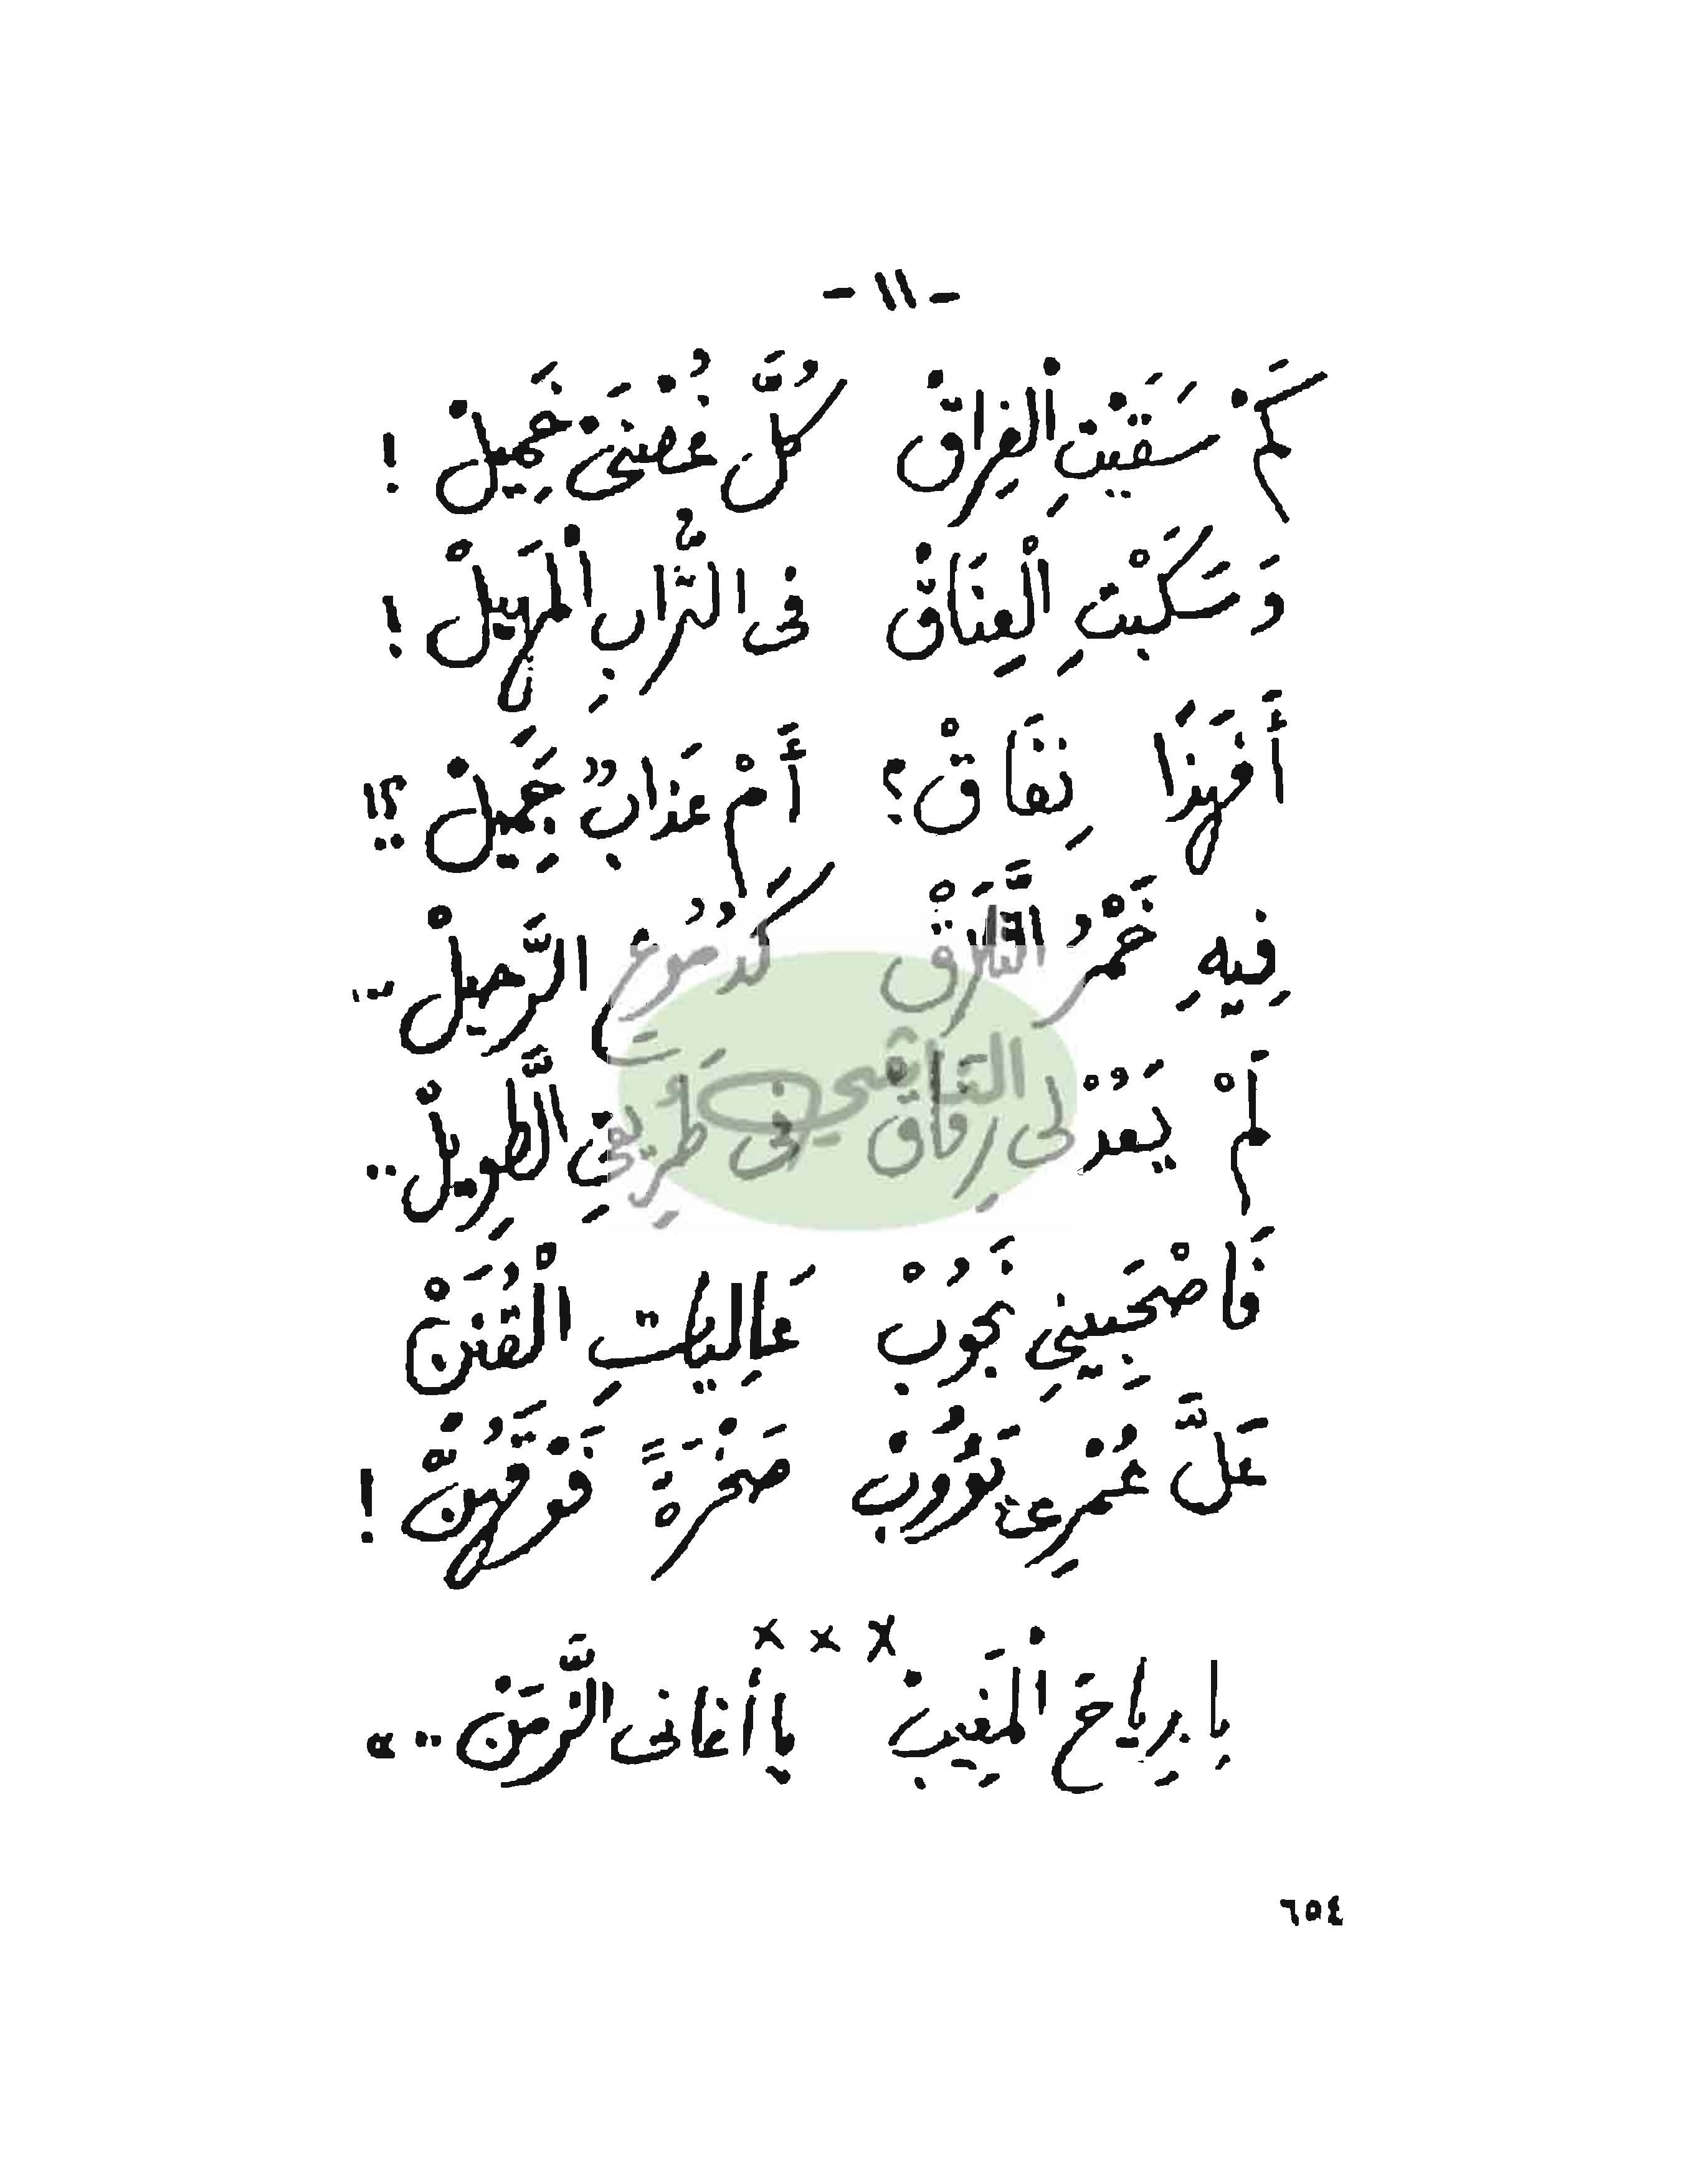 - ١١ -
كَمْ سَقَيْتِ الْفِرَاقْ كُلَّ غُصْنٍ جَمِيلْ !
وَسَكَبْتِ الْعِنَاقْ فى التُّرَابِ الْمَهِيلْ !
أَفَهَذَا نِفَاقْ؟ أَمْ عَذَابٌ جَمِيلْ ؟!
فِيهِ خَمْرُ التَّلَاقْ كَدُمُوعِ الرَّحِيلْ ..
لَمْ يَعُدْ لى رِفَاقْ فى طَرِيقِى الطَّوِيلْ ..
فَاصْحَبِينِي نَجُوبْ عَالِيَاتِ الْقُنَنْ
عَلَّ عُمْرِى يَؤُوبْ صَخْرَةً فَوْقَهُنّْ !
× × ×
يا رِيَاحَ الْمَغِيبْ يا أغانى الزَّمَنْ .. »
٦٥٤